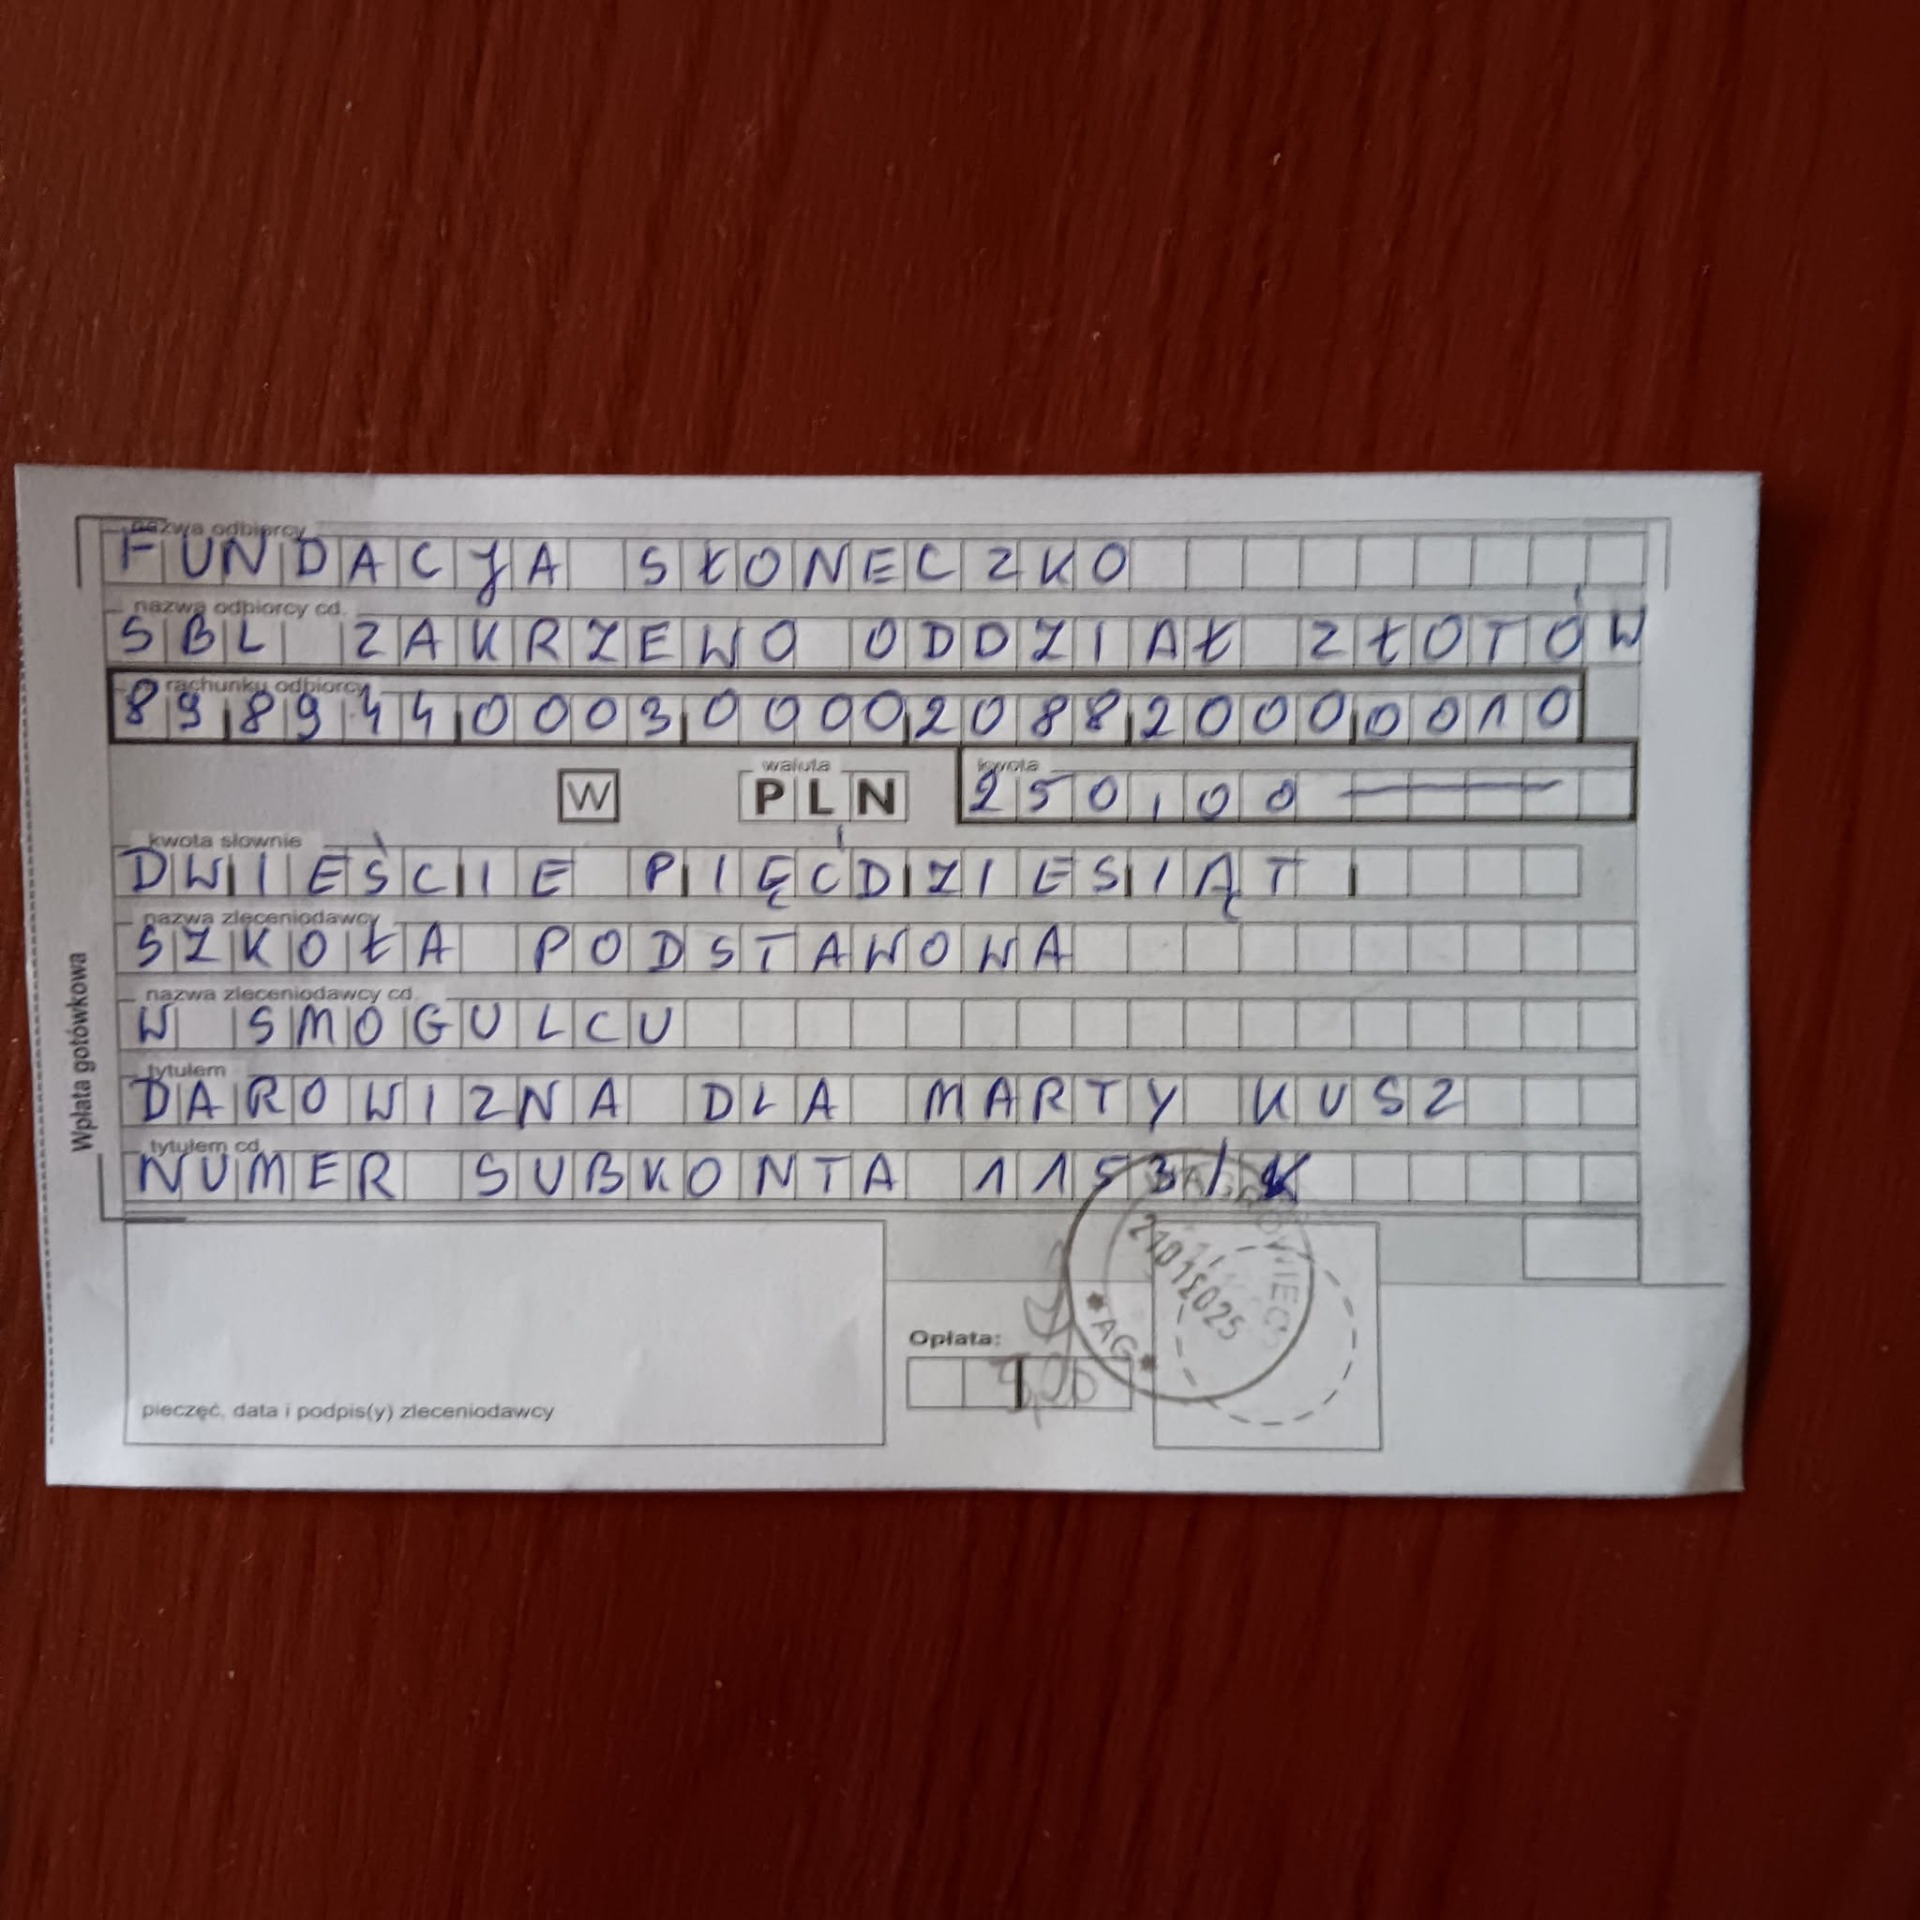 nazwa odbiorcy
FUNDACJA SŁONECZKO
nazwa odbiorcy cd.
SBL ZAKRZEWO ODDZIAŁ ZŁOTÓW
rachunku odbiorcy
89 8944 0003 0000 2088 2000 0010
W
waluta
PLN
kwota
250,00
kwota słownie
DWIEŚCIE PIĘĆDZIESIĄT
nazwa zleceniodawcy
SZKOŁA PODSTAWOWA
nazwa zleceniodawcy cd.
W SMOGULCU
tytułem
DAROWIZNA DLA MARTY KUSZ
tytułem cd.
NUMER SUBKONTA 1153/K
Wpłata gotówkowa
Opłata:
pieczęć, data i podpis(y) zleceniodawcy